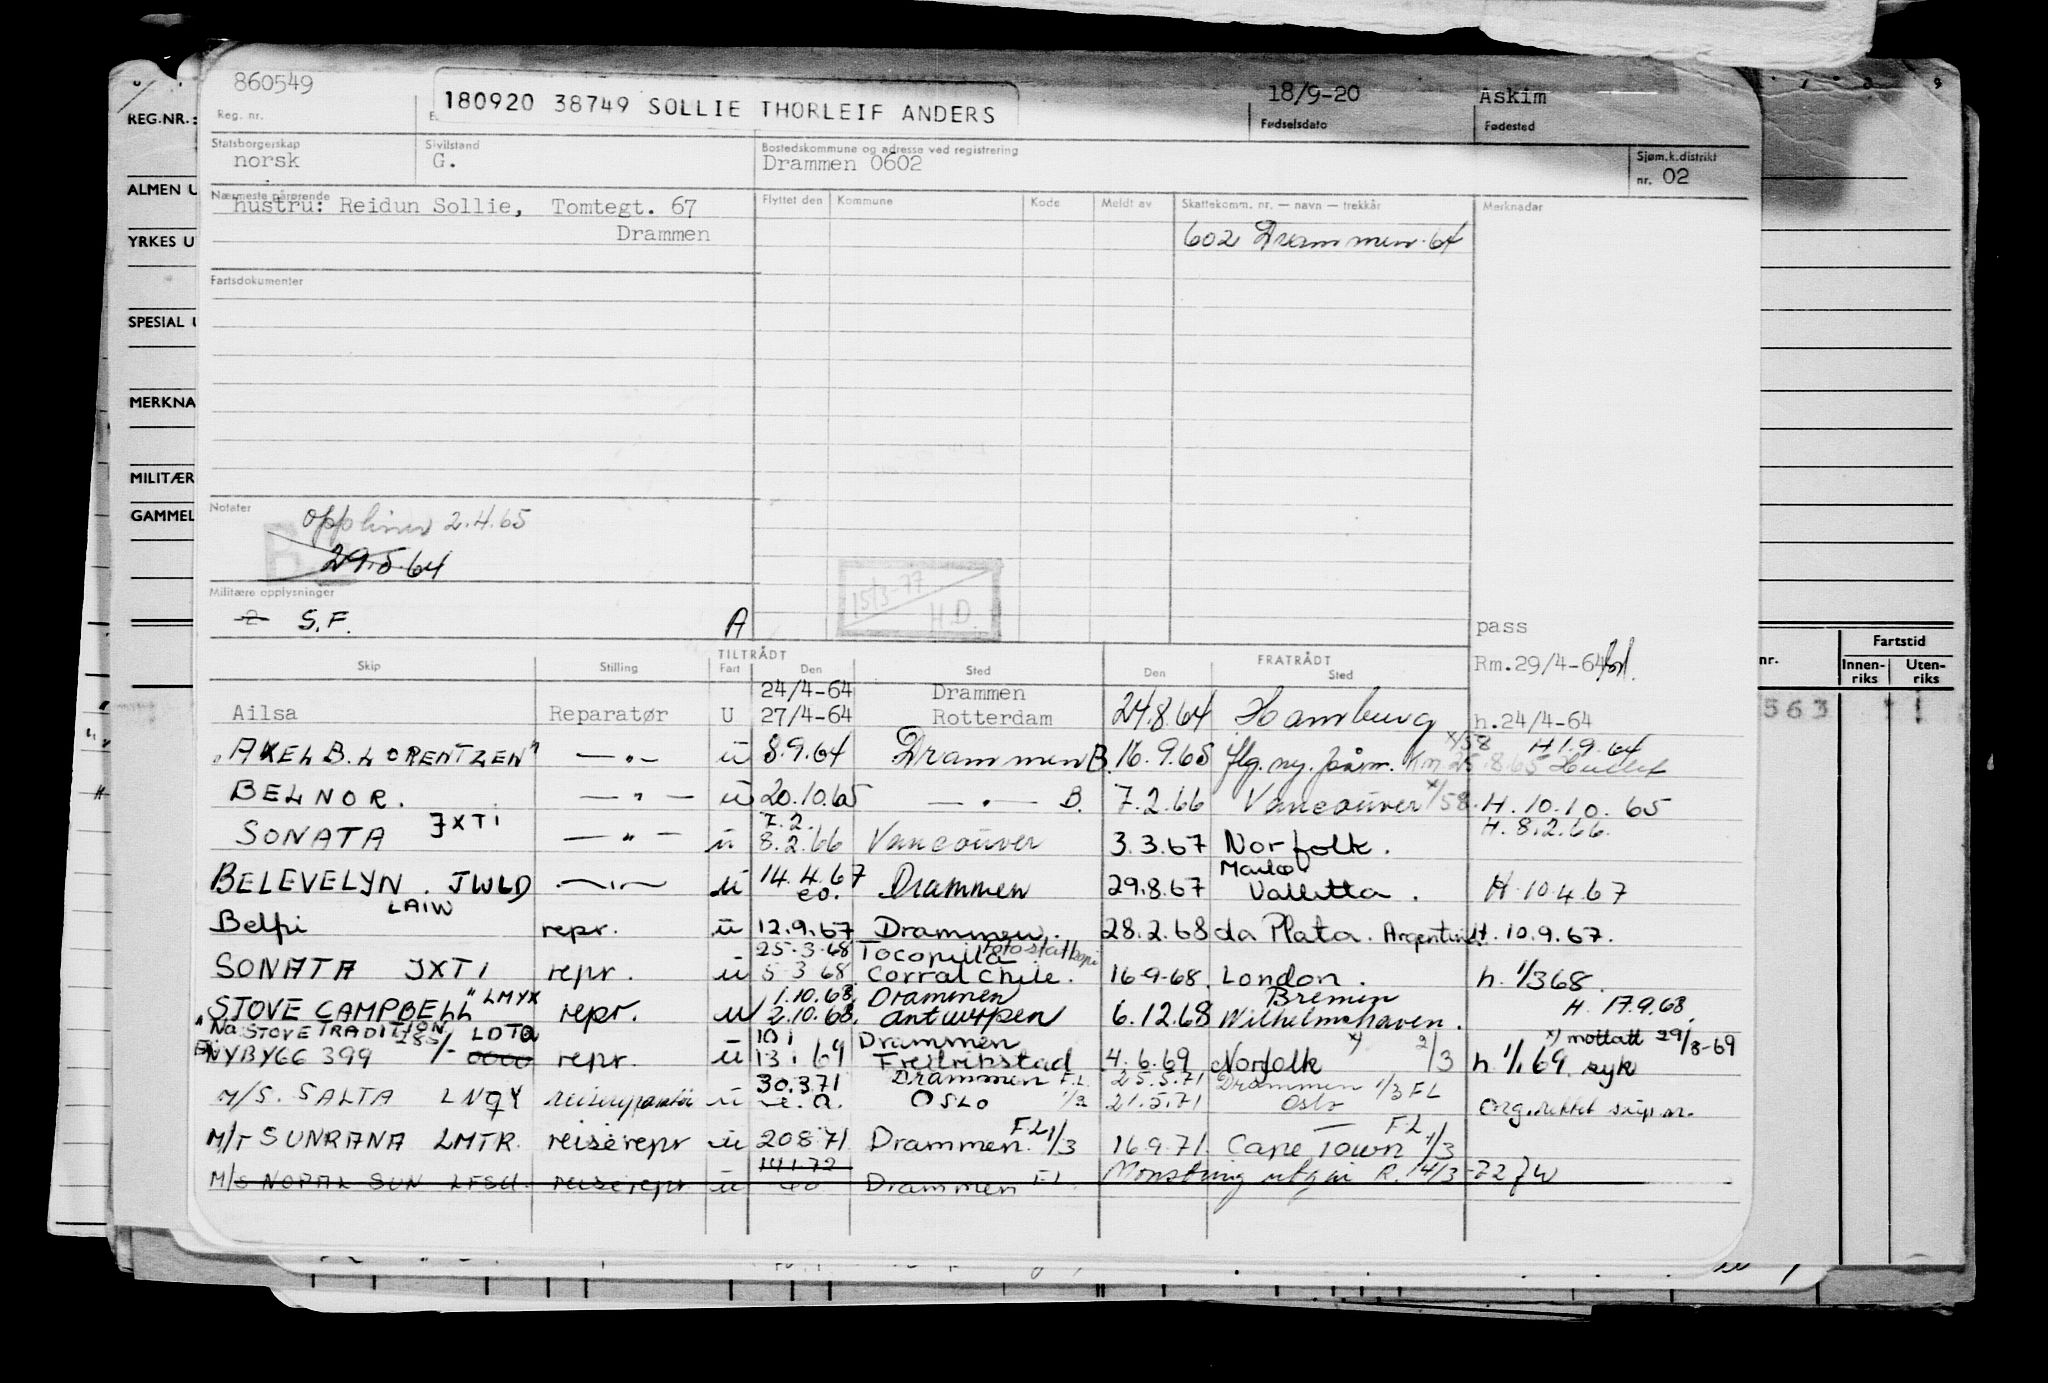 860549
180920 38749 SOLLIE THORLEIF ANDERS
18/9-20
Askim
Reg. nr.
Fødselsdato
Fødested
Statsborgerskap
norsk
Sivilstand
G.
Bostedskommune og adresse ved registrering
Drammen 0602
Sjøm.k.distrikt
nr. 02
Nærmeste pårørende
hustru: Reidun Sollie, Tomtegt. 67
Drammen
Flyttet den Kommune Kode Meldt av Skattekomm. nr. — navn — trekkår Merknader
602 Drammen 64
Fartsdokumenter
Notater
2.4.65
29.5.64
Militære opplysninger
2 S.F. A
15/3-77
H.D.
pass
Rm.29/4-64
TILTRÅDT FRATRÅDT
Skip Stilling Fart Den Sted Den Sted
24/4-64 Drammen
Ailsa Reparatør U 27/4-64 Rotterdam 24.8.64 Hamburg h.24/4-64
x/58 H 1.9.64
"AXEL B. LORENTZEN" —"— ü 8.9.64 Drammen B. 16.9.65 25.8.65
BELNOR. —"— ü 20.10.65 —"— B. 7.2.66 Vancouver x/58. H. 10.10.65
7.2. H. 8.2.66.
SONATA JXTI —"— ü 8.2.66 Vancouver 3.3.67 Norfolk.
BELEVELYN. JWLD —"— ü 14.4.67 Drammen 29.8.67 Valletta. H. 10.4.67
LAIW
Belpi repr. ü 12.9.67 Drammen. 28.2.68 da Plata. Argentina H. 10.9.67.
25.3.68 Tocopilla fotostatkopi
SONATA JXTI repr. ü 5 3 68 Corral Chile. 16-9-68. London. h. 1/3 68.
1.10.68, Drammen Bremen
"STOVE CAMPBELL" LMYX repr. u 2.10.68, Antwerpen 6.12.68 Wilhelmshaven. H. 17.9.68.
STOVE TRADITION 285/- LDTQ 10 1 Drammen x) mottatt 29/8-69
NYBYGG 399 repr. ü 13 1 69 Fredrikstad 4.6.69 Norfolk x) 2/3 h. 1/1 69. syk
30.3.71 Drammen F.L. 25.5.71 Drammen 1/3 FL
M/S. SALTA LNQY reisereparatør ü Oslo 1/3 21.5.71 Oslo
M/T SUNRANA LMTR. reiserepr ü 20 8 71 Drammen. F.L 1/3 16.9.71. Cape Town F.L. 1/3
M/S NOPAL SUN LFSU reiserepr ü 14 1 72 Drammen F.L. Monstring utgår R. 14/3-72
REG.NR.:
ALMEN U
YRKES U
SPESIAL U
MERKNA
MILITÆR
GAMMEL
nr.
Fartstid
Innen-
riks
Uten-
riks
563